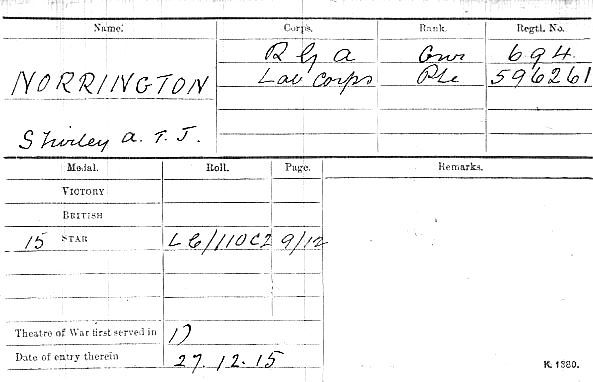 Name. Corps. Rank. Regtl. No.
R G A Gnr 694.
NORRINGTON Lab Corps Pte 596261
Shirley A. T. J.
Medal. Roll. Page. Remarks.
VICTORY
BRITISH
15 STAR LC/110C2 9/12
Theatre of War first served in
Date of entry therein 27.12.15
K. 1380.